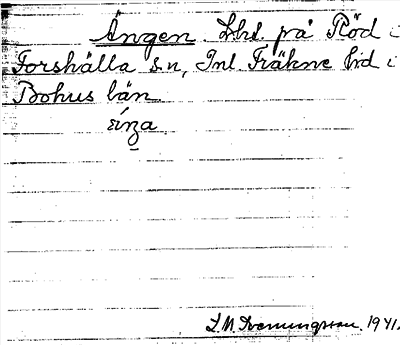 Ängen. Lht. på Röd i
Forshälla sn, Inl. Fräkne hd i
Bohus län.
1941.